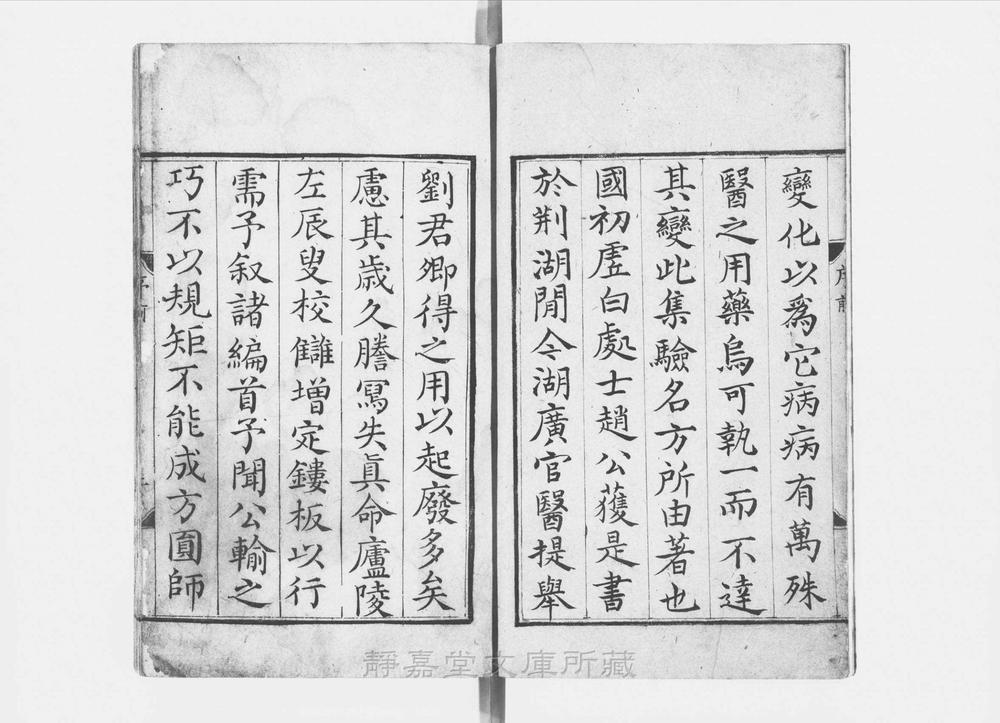 變化以爲它病病有萬殊
醫之用藥烏可執一而不達
其變此集驗名方所由著也
國初虗白處士趙公獲是書
於荆湖閒令湖廣官醫提舉
劉君卿得之用以起廢多矣
慮其歲久謄寫失眞命廬陵
左辰叟校讎增定鏤板以行
需予叙諸編首予聞公輸之
巧不以規矩不能成方圓師
序前
靜嘉堂文庫所藏